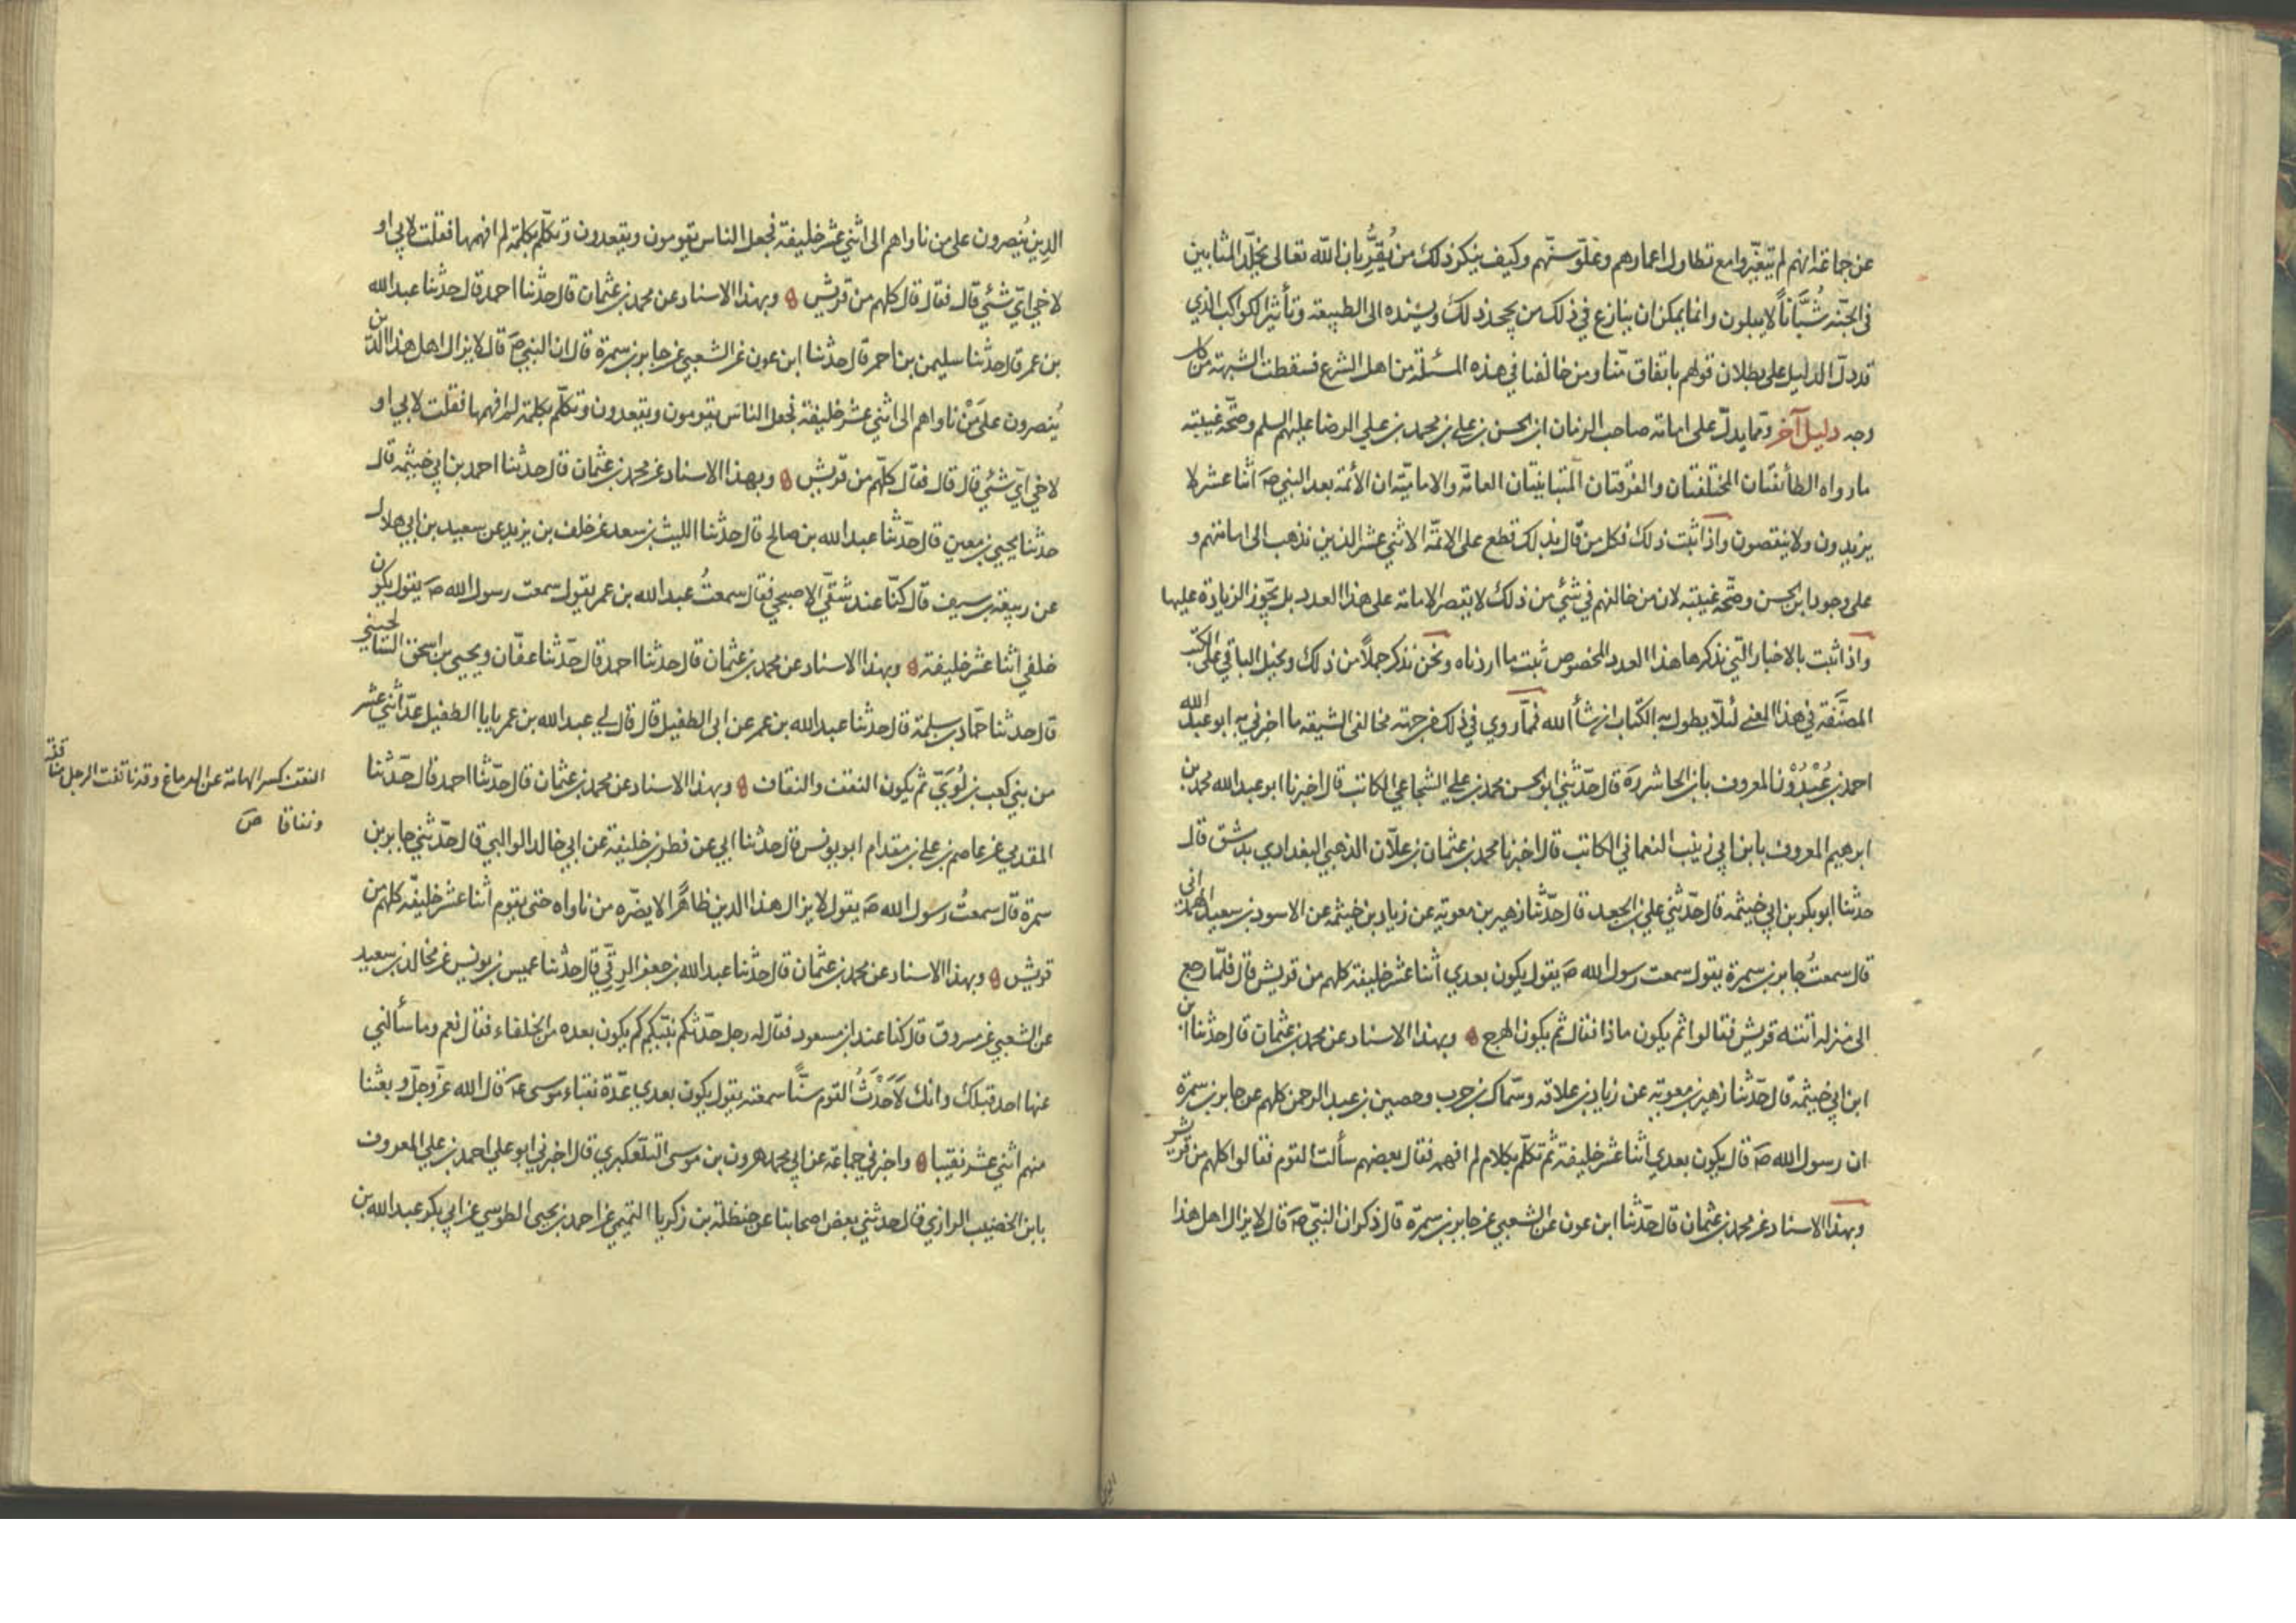 عن جماعة انهم لم يتغيّروا مع تطاول اعمارهم وعلوّ سنّهم وكيف ينكر ذلك من يُقِرُّ بان اللّه تعالى يخلّد المثابين
في الجنّة شُبَّاناً لا يبلون وانما يمكن ان ينازع في ذلك من يجحد ذلك ويسنده الى الطبيعة وتأثير الكواكب الذي
قد دلّ الدليل على بطلان قولهم باتفاق منّا ومن خالفنا في هذه المسئلة من اهل الشرع فسقطت الشبهة من كل
وجه دليل آخر ومما يدلّ على امامة صاحب الزمان ابن الحسن بن علي بن محمد بن علي الرضا عليهم السلم وصحّة غيبته
ما رواه الطائفتان المختلفتان والفرقتان المتباينتان العامّة والاماميّة ان الأئمة بعد النبي صَ اثنا عشر لا
يزيدون ولا ينقصون واذا ثبت ذلك فكل من قال بذلك قطع على الائمّة الاثني عشر الذين نذهب الى امامتهم و
على وجود ابن الحسن وصحّة غيبته لان من خالفهم في شئي من ذلك لا يقصر الامامة على هذا العدد بل يجّوز الزيادة عليها
واذا ثبت بالاخبار التي نذكرها هذا العدد المخصوص ثبت ما اردناه ونحن نذكر جملاً من ذلك ونحيل الباقي على الكتب
المصنَّفة في هذا المعنى لئلّا يطول به الكتاب ان شأ الله فمّا روي في ذلك من جهة مخالفي الشيعة ما اخبرني به ابو عبد الله
احمد بن عُبْدُوْن المعروف بابن الحاشر رهَ قال حدّثني ابو الحسن محمد بن علي الشجاعي الكاتب قال اخبرنا ابو عبد الله محمد بن
ابرهيم المعروف بابن ابي زينب النعماني الكاتب قال اخبرنا محمد بن عثمان بن علّان الذهبي البغدادي بدمشق قال
حدثنا ابو بكر بن ابي خيثمة قال حدّثني علي بن الجعد قال حدّثنا زهير بن معوية عن زياد بن خيثمه عن الاسود بن سعيد الهمداني
قال سمعتُ جابر بن سمرة يقول سمعت رسول الله صَ يقول يكون بعدي اثنا عشر خليفة كلهم من قريش قال فلمّا رجع
الى منزله اتته قريش فقالوا ثم يكون ماذا فقال ثم يكون الهرج ۞ وبهذا الاسناد عن محمد بن عثمان قال حدثنا ابن
ابن ابي خيثمة قال حدّثنا زهير بن معوية عن زياد بن علاقة وسمّاك بن حرب وحصين بن عبد الرحمن كلهم عن جابر بن سمرة
ان رسول الله صَ قال يكون بعدي اثنا عشر خليفة ثم تكلّم بكلام لم افهمه فقال بعضهم سألت القوم فقالوا كلهم من قريش
وبهذا الاسناد عن محمد بن عثمان قال حدّثنا ابن عون عن الشعبي عن جابر بن سمرة قال ذكر ان النبيّ صَ قال لا يزال اهل هذا
الدِين يُنصرون على من ناواهم الى اثني عشر خليفة فجعل الناس يقومون ويقعدون وتكلّم بكلمة لم افهمها فقلت لابي او
لاخي ايّ شئي قال فقال قال كلهم من قريش ۞ وبهذا الاسناد عن محمد بن عثمان قال حدّثنا احمد قال حدّثنا عبد الله
بن عمر قال حدّثنا سليمن بن احمر قال حدّثنا ابن عون عن الشعبي عن جابر بن سمرة قال ان النبي صَ قال لا يزال اهل هذا الدّين
يُنصرون على مَنْ ناواهم الى اثني عشر خليفة فجعل الناس يقومون ويقعدون وتكلّم بكلمة لم افهمها فقلت لابي او
لاخي ايّ شئي قال قال فقال كلّهم من قريش ۞ وبهذا الاسناد عن محمد بن عثمان قال حدثنا احمد بن ابي خيثمه قال
حدثنا يحيى بن معين قال حدّثنا عبد الله بن صالح قال حدّثنا الليث بن سعد عن خلف بن يزيد عن سعيد بن ابي هلال
عن ربيعة بن سيف قال كنّا عند شقيّ الاصبحي فقال سمعتُ عبد الله بن عمر يقول سمعت رسول الله صَ يقول يكون
خلفي اثنا عشر خليفة ۞ وبهذا الاسناد عن محمد بن عثمان قال حدثنا احمد قال حدّثنا عفّان ويحيى بن اسحق السالحيني
قال حدثنا حمّاد بن سلمة قال حدثنا عبد الله بن عمر عن ابي الطفيل قال قال لي عبد الله بن عمر يا با الطفيل عدّ اثني عشر
من بني كعب بن لُوَيّ ثم يكون النقف والنقاف ۞ وبهذا الاسناد عن محمد بن عثمان قال حدّثنا احمد قال حدّثنا
المقدمي عن عاصم بن علي بن مقدام ابو يونس قال حدثنا ابي عن فطر بن خليفة عن ابي خالد الوالبي قال حدّثني جابر بن
سمرة قال سمعتُ رسول الله صَ يقول لا يزال هذا الدين ظاهرًا لا يضرّه من ناواه حتى يقوم اثنا عشر خليفة كلهم من
قريش ۞ وبهذا الاسناد عن محمد بن عثمان قال حدّثنا عبد الله بن جعفر الرقّي قال حدّثنا عيسى بن يونس عن مجالد بن سعيد
عن الشعبي عن مسروق قال كنا عند ابن مسعود فقال له رجل حدّثكم نبيّكم كم يكون بعده من الخلفاء فقال نعم وما سألني
عنها احد قبلك وانك لَأَحْدَثُ القوم سنًّا سمعته يقول يكون بعدي عدّة نقباء موسى عَه قال الله عزّ وجلّ وبعثنا
منهم اثني عشر نقيبا ۞ واخبرني جماعة عن ابي محمد هرون بن موسى التلعكبري قال اخبرني ابو علي احمد بن علي المعروف
بابن الخضيب الرازي قال حدثني بعض اصحابنا عن حنظلة بن زكريا التميمي عن احمد بن يحيى الطوسي عن ابي بكر عبد الله بن
النقف كسر الهامة عن الدماغ وقد ناقفت الرجل مناقفة
ونقافا صَ